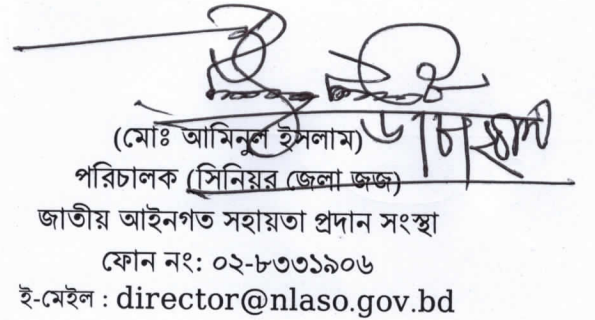 (মোঃ আমিনুল ইসলাম)
পরিচালক (সিনিয়র জেলা জজ)
জাতীয় আইনগত সহায়তা প্রদান সংস্থা
ফোন নং: ০২-৮৩৩১৯০৬
ই-মেইল : director@nlaso.gov.bd